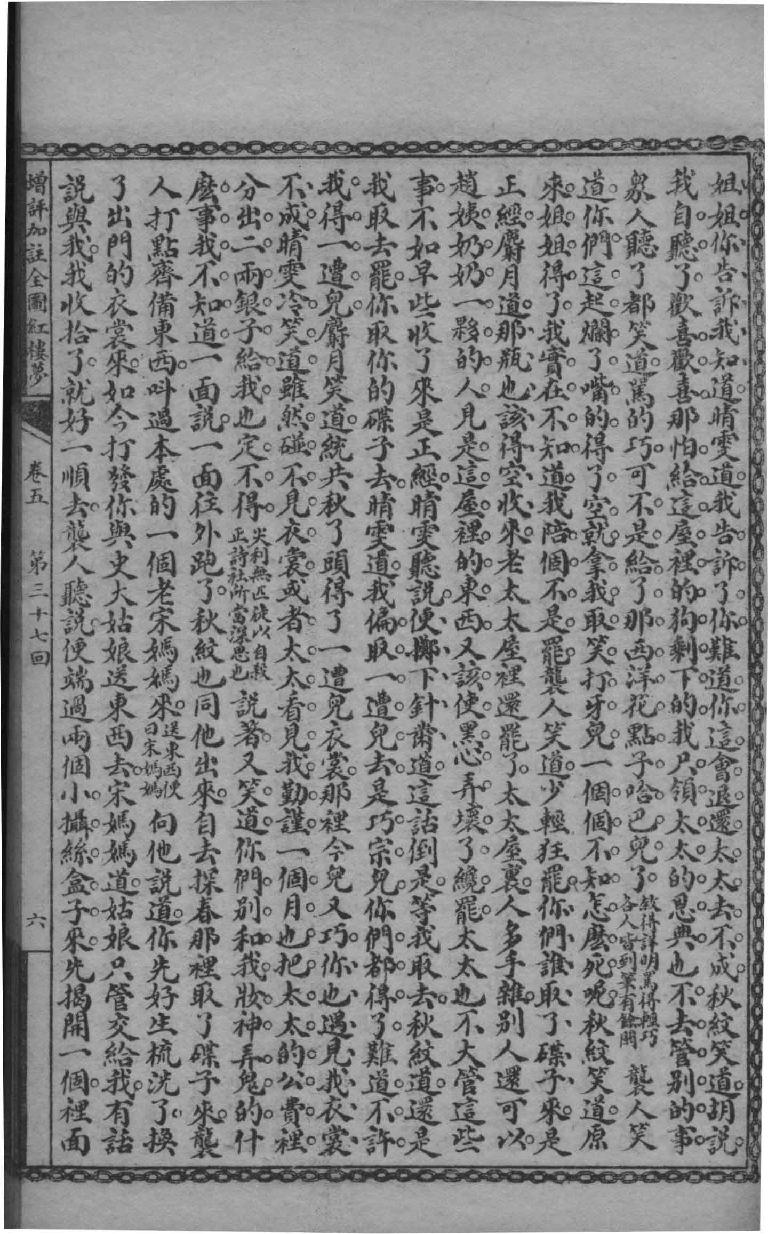 姐姐你告訴我知道晴雯道我告訴了你難道你這會退還太太去不成秋紋笑道胡說
我自聽了歡喜歡喜那怕給這屋裡的狗剩下的我只領太太的恩典也不去管別的事
衆人聽了都笑道罵的巧可不是給了那西洋花點子哈巴兒了敘得詳明罵得輕巧各人當到筆有餘閒襲人笑
道你們這起爛了嘴的得了空就拿我取笑打牙兒一個個不知怎麽死呢秋紋笑道原
來姐姐得了我實在不知道我陪個不是罷襲人笑道少輕狂罷你們誰取了碟子來是
正經麝月道那瓶也該得空收來老太太屋裡還罷了太太屋裏人多手雜别人還可以
趙姨奶奶一夥的人見是這屋裡的東西又該使黑心弄壞了纔罷太太也不大管這些
事不如早些收了來是正經晴雯聽說便擲下針黹道這話倒是等我取去秋紋道還是
我取去罷你取你的碟子去晴雯道我偏取一遭兒去是巧宗兒你們都得了難道不許
我得一遭兒麝月笑道統共秋了頭得了一遭兒衣裳那裡今兒又巧你也遇見找衣裳
不成晴雯冷笑道雖然碰不見衣裳或者太太看見我勤謹一個月也把太太的公費裡
分出二兩銀子給我也定不得尖利無匹徒以自殺正詩社所當深思也說著又笑道你們别和我妝神弄鬼的什
麽事我不知道一面說一面往外跑了秋紋也同他出來自去探春那裡取了碟子來襲
人打點齊備東西叫過本處的一個老宋媽媽來送東西便曰宋媽媽向他說道你先好生梳洗了換
了出門的衣裳來如今打發你與史大姑娘送東西去宋媽媽道姑娘只管交給我有話
說與我我收拾了就好一順去襲人聽說便端過兩個小攝絲盒子來先揭開一個裡面
增評加註全圖紅樓夢 卷五 第三十七回 六